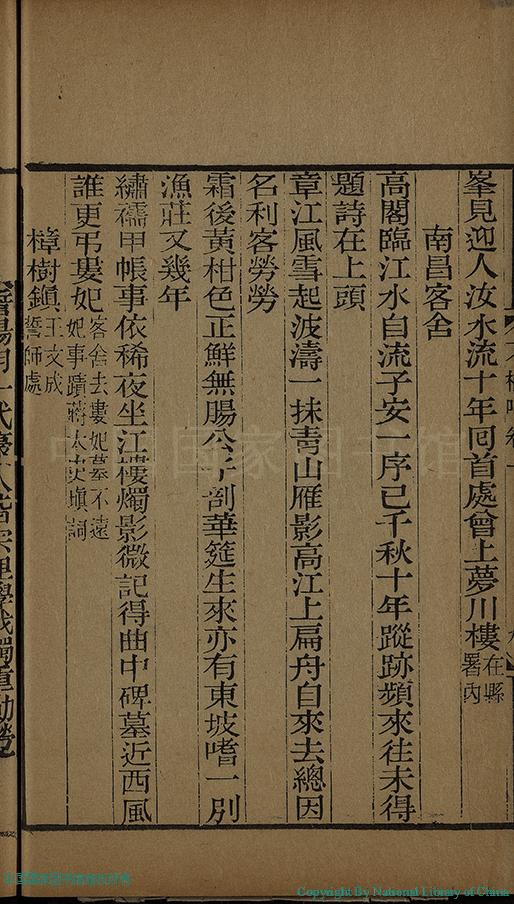 峯見迎人汝水流十年回首處曾上夢川樓在縣署內
南昌客舍
高閣臨江水自流子安一序已千秋十年蹤跡頻來往未得
題詩在上頭
章江風雪起波濤一抹青山雁影高江上扁舟自來去總因
名利客勞勞
霜後黃柑色正鮮無腸公子剖華筵生來亦有東坡嗜一別
漁莊又幾年
繡襦甲帳事依稀夜坐江樓燭影微記得曲中碑墓近西風
誰更弔婁妃客舍去婁妃墓不遠妃事蹟蔣太史塡詞
樟樹鎭王文成誓師處
中國家图书馆
Copyright By National Library of China